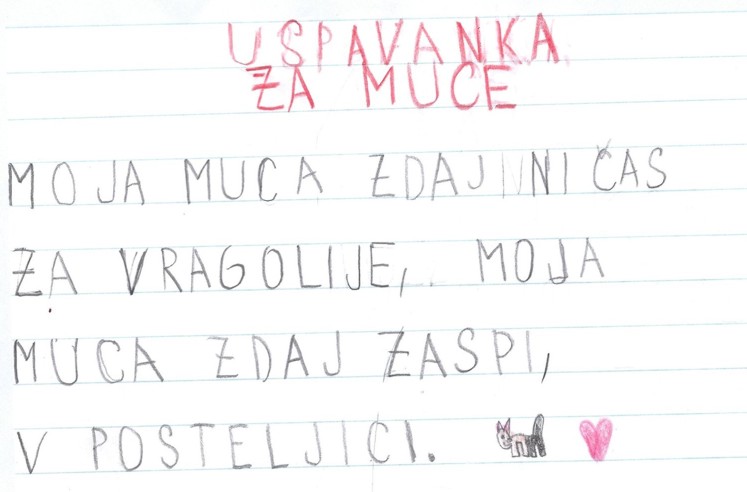 USPAVANKA
ZA MUCE
MOJA MUCA ZDAJ NI ČAS
ZA VRAGOLIJE, MOJA
MUCA ZDAJ ZASPI,
V POSTELJICI.